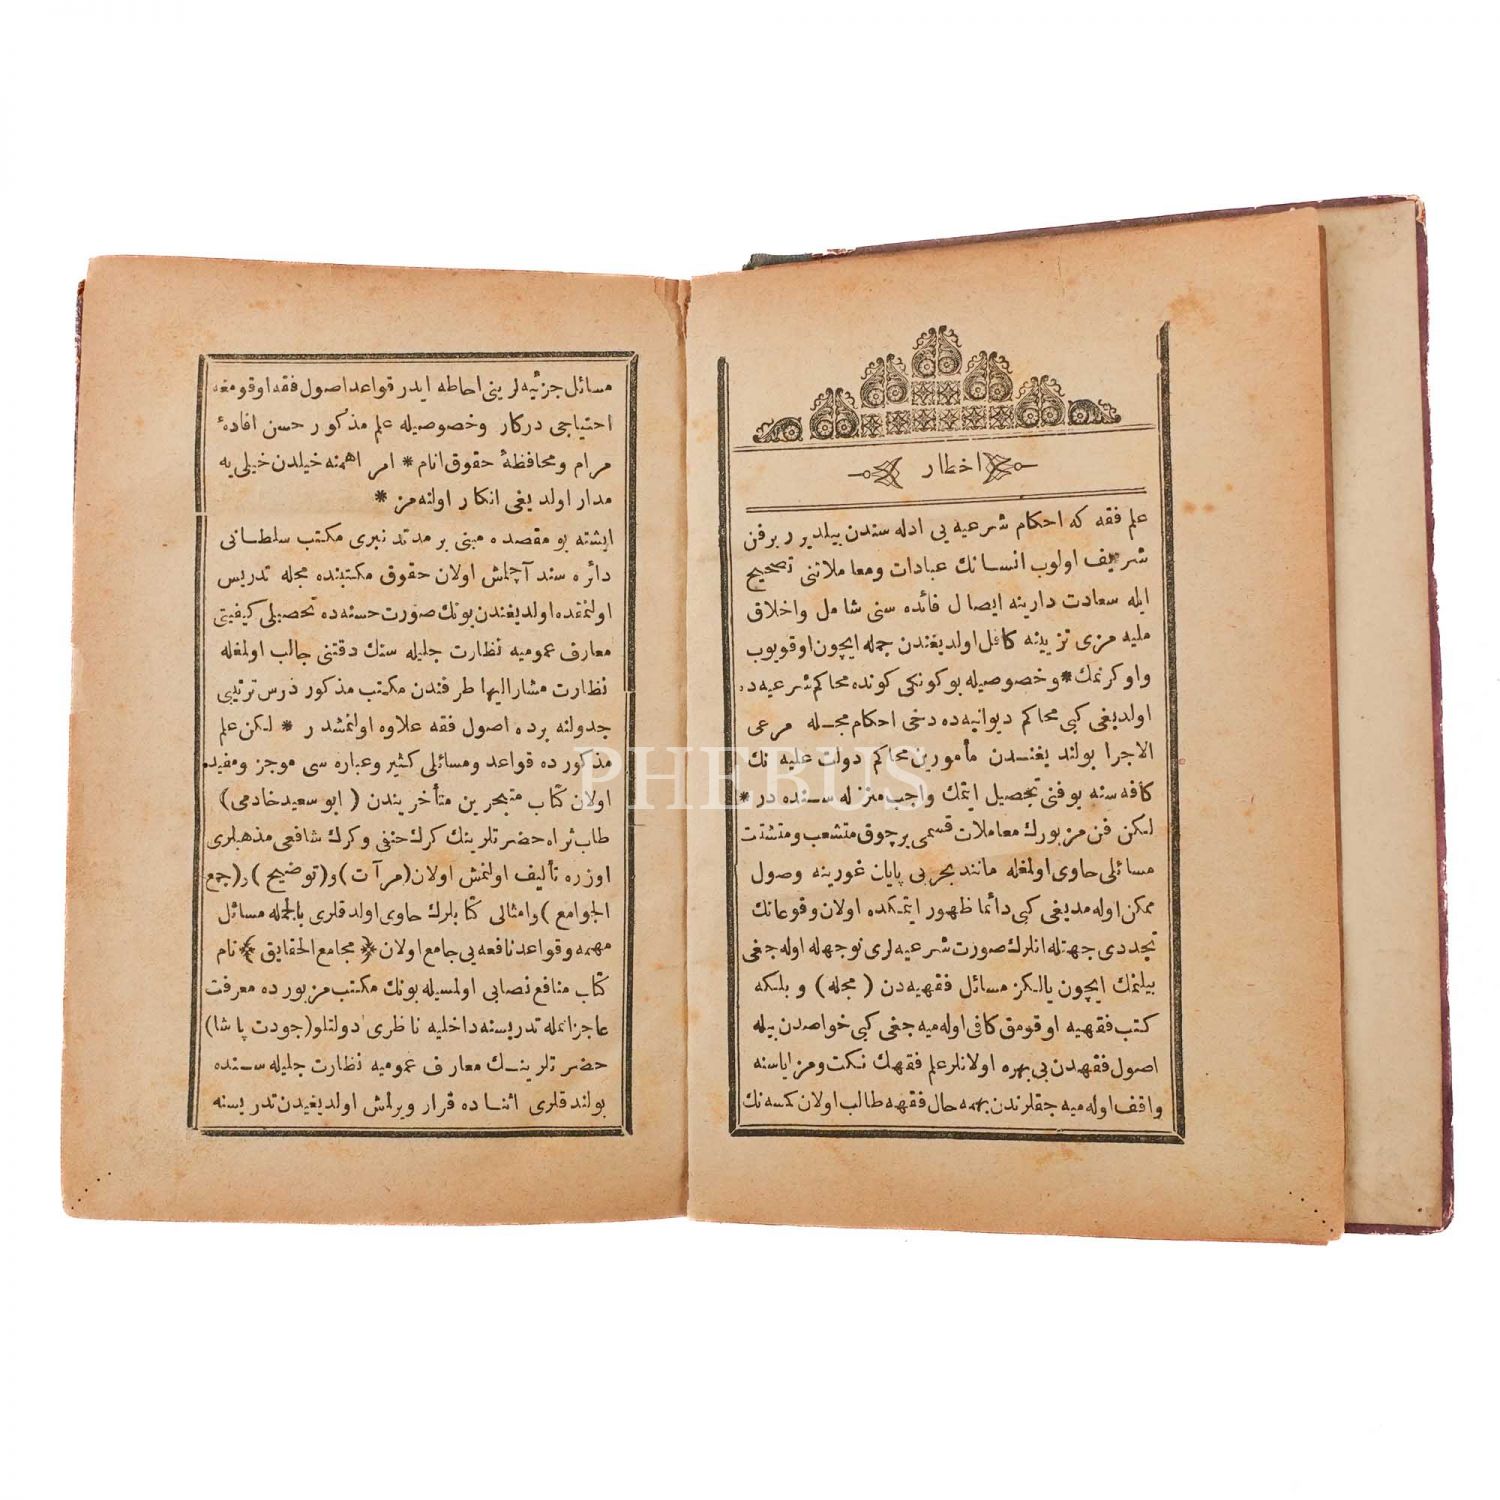 اخطار
علم فقه كه احكام شرعيه يى ادله سندن بيلدير ر برفن
شريف اولوب انسانك عبادات ومعاملاتنى تصحيح
ايله سعادت دارينه ايصال فائده سنى شامل واخلاق
مليه مزى تزيينه كافل اولديغندن جمله ايچون اوقويوب
واوكرنمك * وخصوصيله بوكونكى كونده محاكم شرعيه ده
اولديغى كبى محاكم ديوانيه ده دخى احكام مجله مرعى
الاجرا بولنديغندن مأمورين محاكم دولت عليه نك
كافه سنه بوفنى تحصيل ايتمك واجب منزله سنده در *
لكن فن مزبورك معاملات قسمى برچوق متشعب ومتشتت
مسائلى حاوى اولمغله مانند بحر بى پايان غورينه وصول
ممكن اوله مديغى كبى دائما ظهور ايتمكده اولان وقوعاتك
تجددى جهتله انلرك صورت شرعيه لرى نوجهله اوله جغى
بيلنمك ايچون يالكز مسائل فقهيه دن (مجله) و بلكه
كتب فقهيه اوقومق كافى اوله ميه جغى كبى خواصدن بيله
اصول فقهدن بى بهره اولانلر علم فقهك نكت ومزاياسنه
واقف اوله ميه جقلرندن بهمه حال فقهه طالب اولان كمسه نك
مسائل جزئيه لرينى احاطه ايدر قواعد اصول فقه اوقومغه
احتياجى دركار وخصوصيله علم مذكور حسن افادۀ
مرام ومحافظۀ حقوق انام * امر اهمنه خيلدن خيلى يه
مدار اولديغى انكار اولنه مز *
ايشته بو مقصده مبنى بر مدتدنبرى مكتب سلطانى
دائره سنده آچلمش اولان حقوق مكتبنده مجله تدريس
اولنمقده اولديغندن بونك صورت حسنه ده تحصيلى كيفيتى
معارف عموميه نظارت جليله سنك دقتنى جالب اولمغله
نظارت مشاراليها طرفندن مكتب مذكور درس ترتيبى
جدولنه برده اصول فقه علاوه اولنمشدر * لكن علم
مذكورده قواعد ومسائلى كثير وعباره سى موجز ومفيد
اولان كتاب متبحرين متأخريندن (ابو سعيد خادمى)
طاب ثراه حضرتلرينك كرك حنفى وكرك شافعى مذهبلرى
اوزره تأليف اولنمش اولان (مرآت) و(توضيح) و(جمع
الجوامع) وامثالى كتابلرك حاوى اولدقلرى بالجمله مسائل
مهمه وقواعد نافعه يى جامع اولان ﴿مجامع الحقايق﴾ نام
كتاب منافع نصابى اولمسيله بونك مكتب مزبورده معرفت
عاجزانمله تدريسنه داخليه ناظرى دولتلو (جودت پاشا)
حضرتلرينك معارف عموميه نظارت جليله سنده
بولندقلرى اثناده قرار ويرلمش اولديغندن تدريسنه
PHEBUS